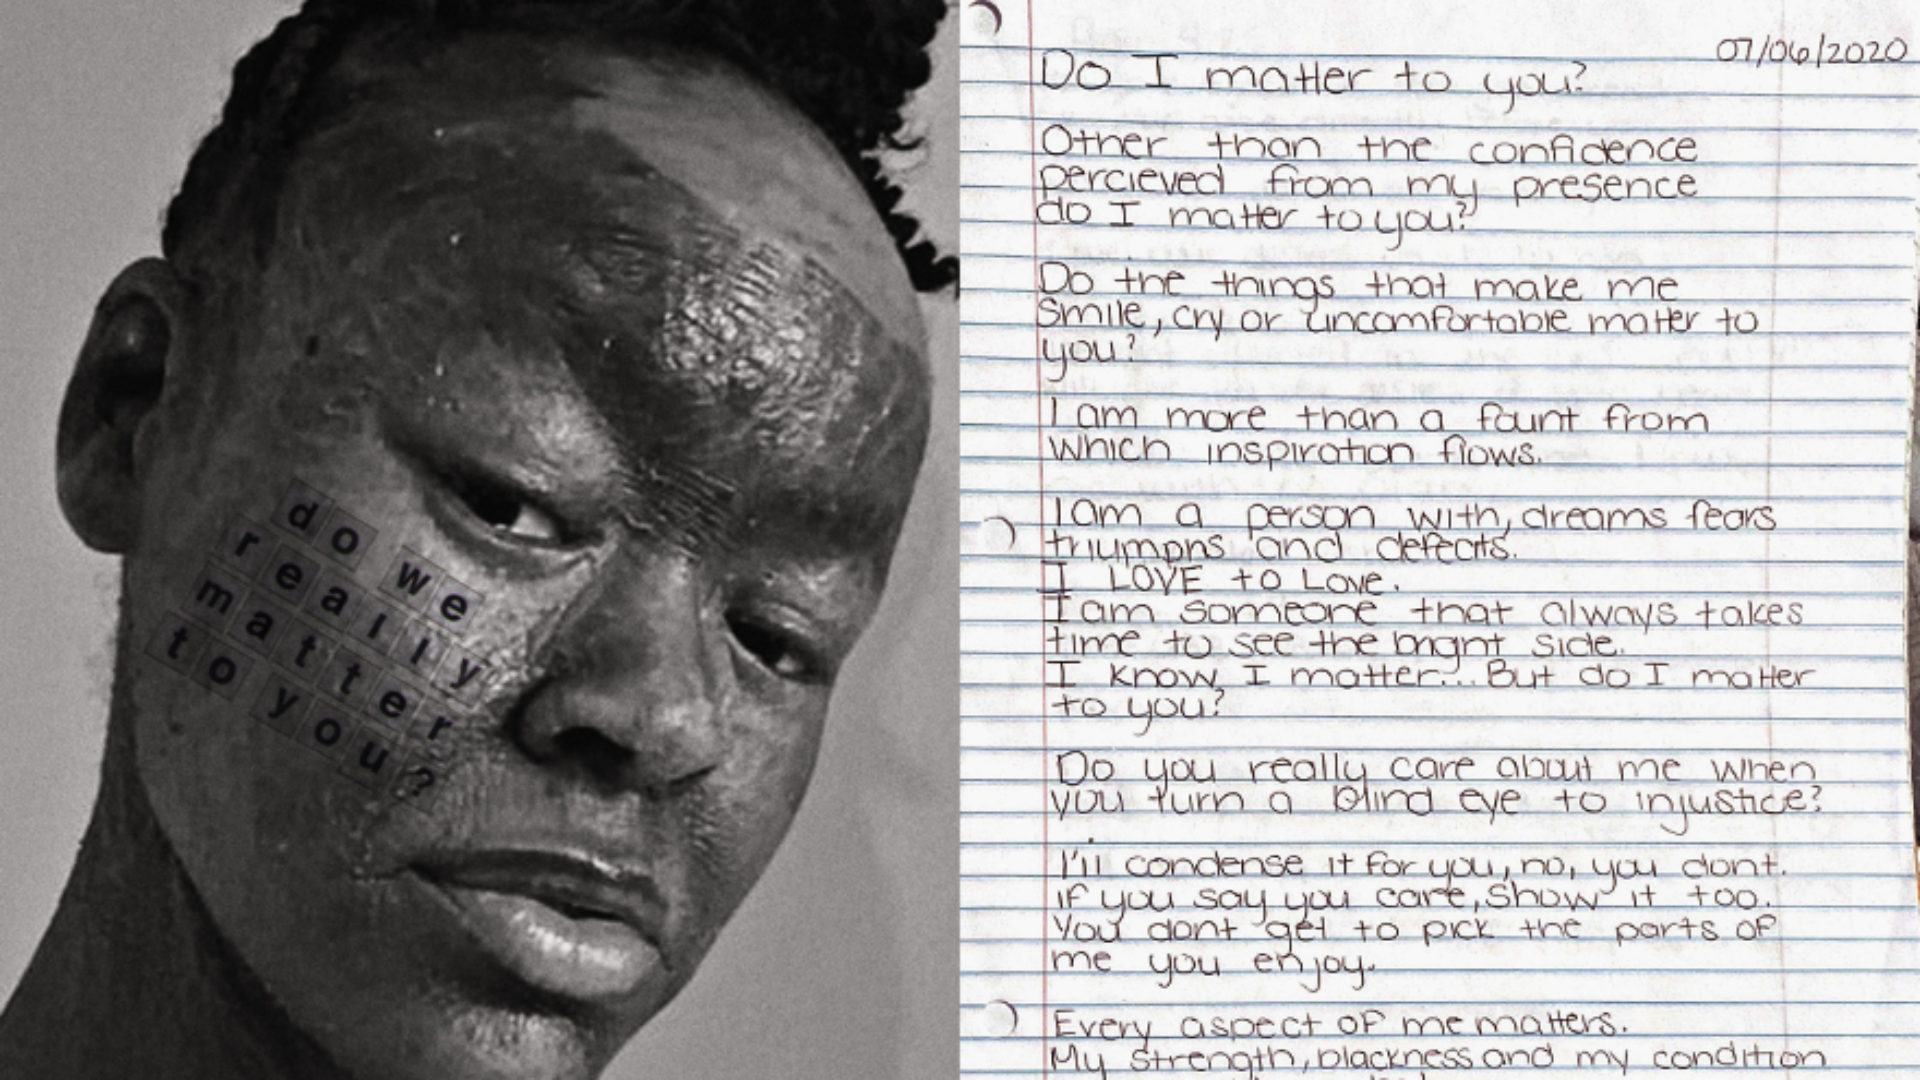 do we
really
matter
to you?
07/06/2020
Do I matter to you?
Other than the confidence
percieved from my presence
do I matter to you?
Do the things that make me
smile, cry or uncomfortable matter to
you?
I am more than a fount from
which inspiration flows.
I am a person with, dreams fears
triumphs and defects.
I LOVE to Love.
I am someone that always takes
time to see the bright side.
I know I matter... But do I matter
to you?
Do you really care about me when
you turn a blind eye to injustice?
I'll condense it for you, no, you dont.
If you say you care, show it too.
You dont get to pick the parts of
me you enjoy.
Every aspect of me matters.
My strength, blackness and my condition